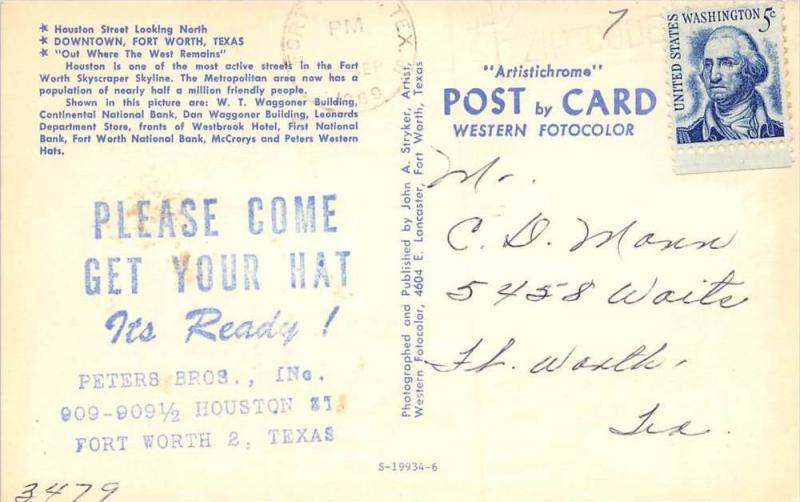 ★ Houston Street Looking North
★ DOWNTOWN, FORT WORTH, TEXAS
★ "Out Where The West Remains"
Houston is one of the most active streets in the Fort
Worth Skyscraper Skyline. The Metropolitan area now has a
population of nearly half a million friendly people.
Shown in this picture are: W. T. Waggoner Building,
Continental National Bank, Dan Waggoner Building, Leonards
Department Store, fronts of Westbrook Hotel, First National
Bank, Fort Worth National Bank, McCrorys and Peters Western
Hats.
PLEASE COME
GET YOUR HAT
Its Ready!
PETERS BROS., INC.
909-909½ HOUSTON ST.
FORT WORTH 2, TEXAS
3479
Photographed and Published by John A. Stryker, Artist,
Western Fotocolor, 4604 E. Lancaster, Fort Worth, Texas
S-19934-6
TEX.
PM
SEP
1969
7
"Artistichrome"
POST by CARD
WESTERN FOTOCOLOR
UNITED STATES
WASHINGTON 5c
Mr.
C. D. Mann
5458 Waits
Ft. Worth,
Tex.